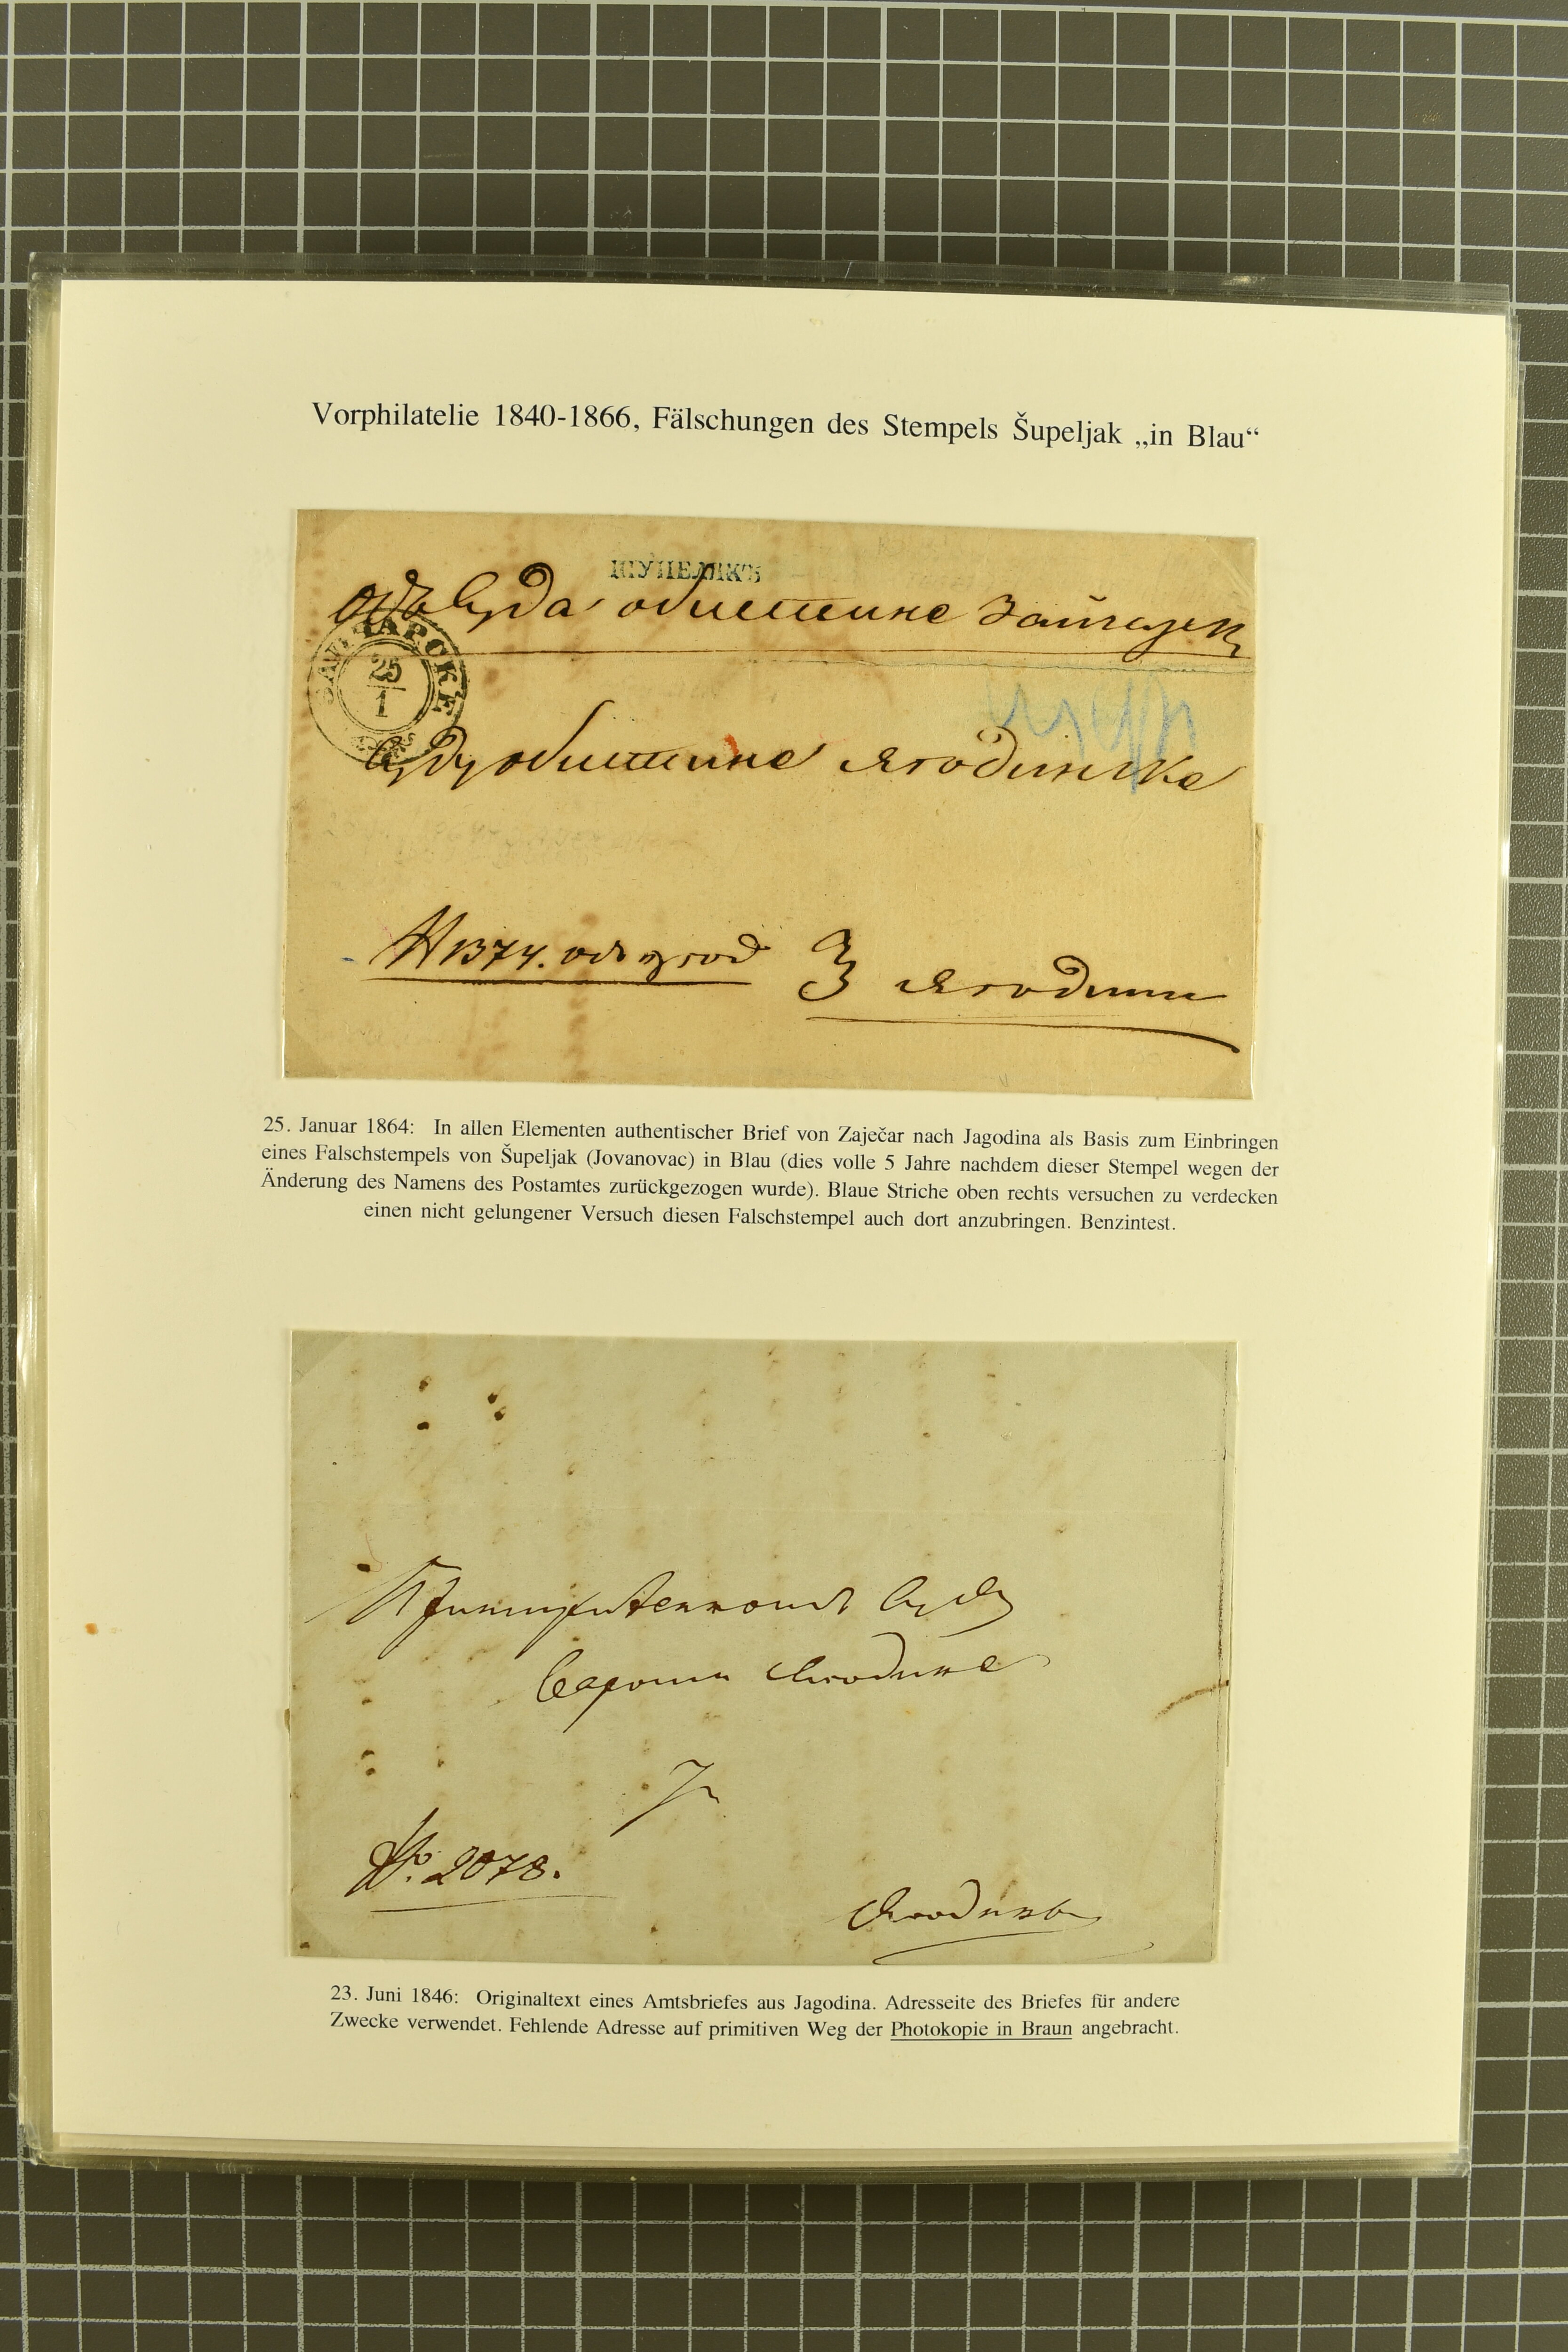 Vorphilatelie 1840-1866, Fälschungen des Stempels Šupeljak „in Blau“
ШУПЕЛЯКЪ
одъ Суда общине
25
1
Суду общине Ягодинске
№ 1374.
З Ягодини
25. Januar 1864: In allen Elementen authentischer Brief von Zaječar nach Jagodina als Basis zum Einbringen
eines Falschstempels von Šupeljak (Jovanovac) in Blau (dies volle 5 Jahre nachdem dieser Stempel wegen der
Änderung des Namens des Postamtes zurückgezogen wurde). Blaue Striche oben rechts versuchen zu verdecken
einen nicht gelungener Versuch diesen Falschstempel auch dort anzubringen. Benzintest.
Суду
Вароши Ягодине
№. 2078.
23. Juni 1846: Originaltext eines Amtsbriefes aus Jagodina. Adresseite des Briefes für andere
Zwecke verwendet. Fehlende Adresse auf primitiven Weg der Photokopie in Braun angebracht.